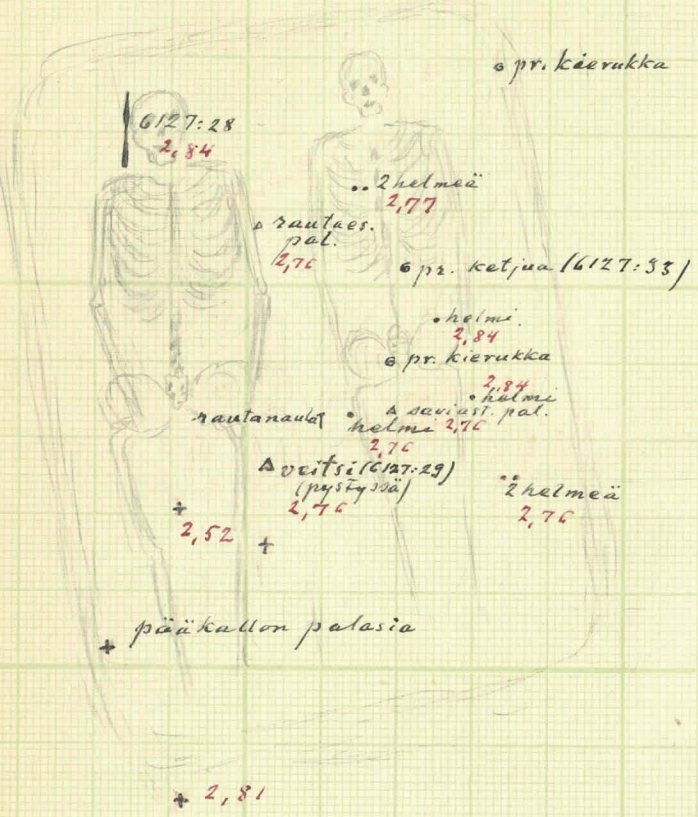 pr. kierukka
6127:28
2,84
2 helmeä
2,77
rautaes.
pal.
2,76
pr. ketjua (6127:33)
helmi
2,84
pr. kierukka
2,84
helmi
saviast. pal.
2,76
rautanaula
helmi
2,76
veitsi (6127:29)
(pystyssä)
2,76
2 helmeä
2,76
2,52
pääkallon palasia
2,81